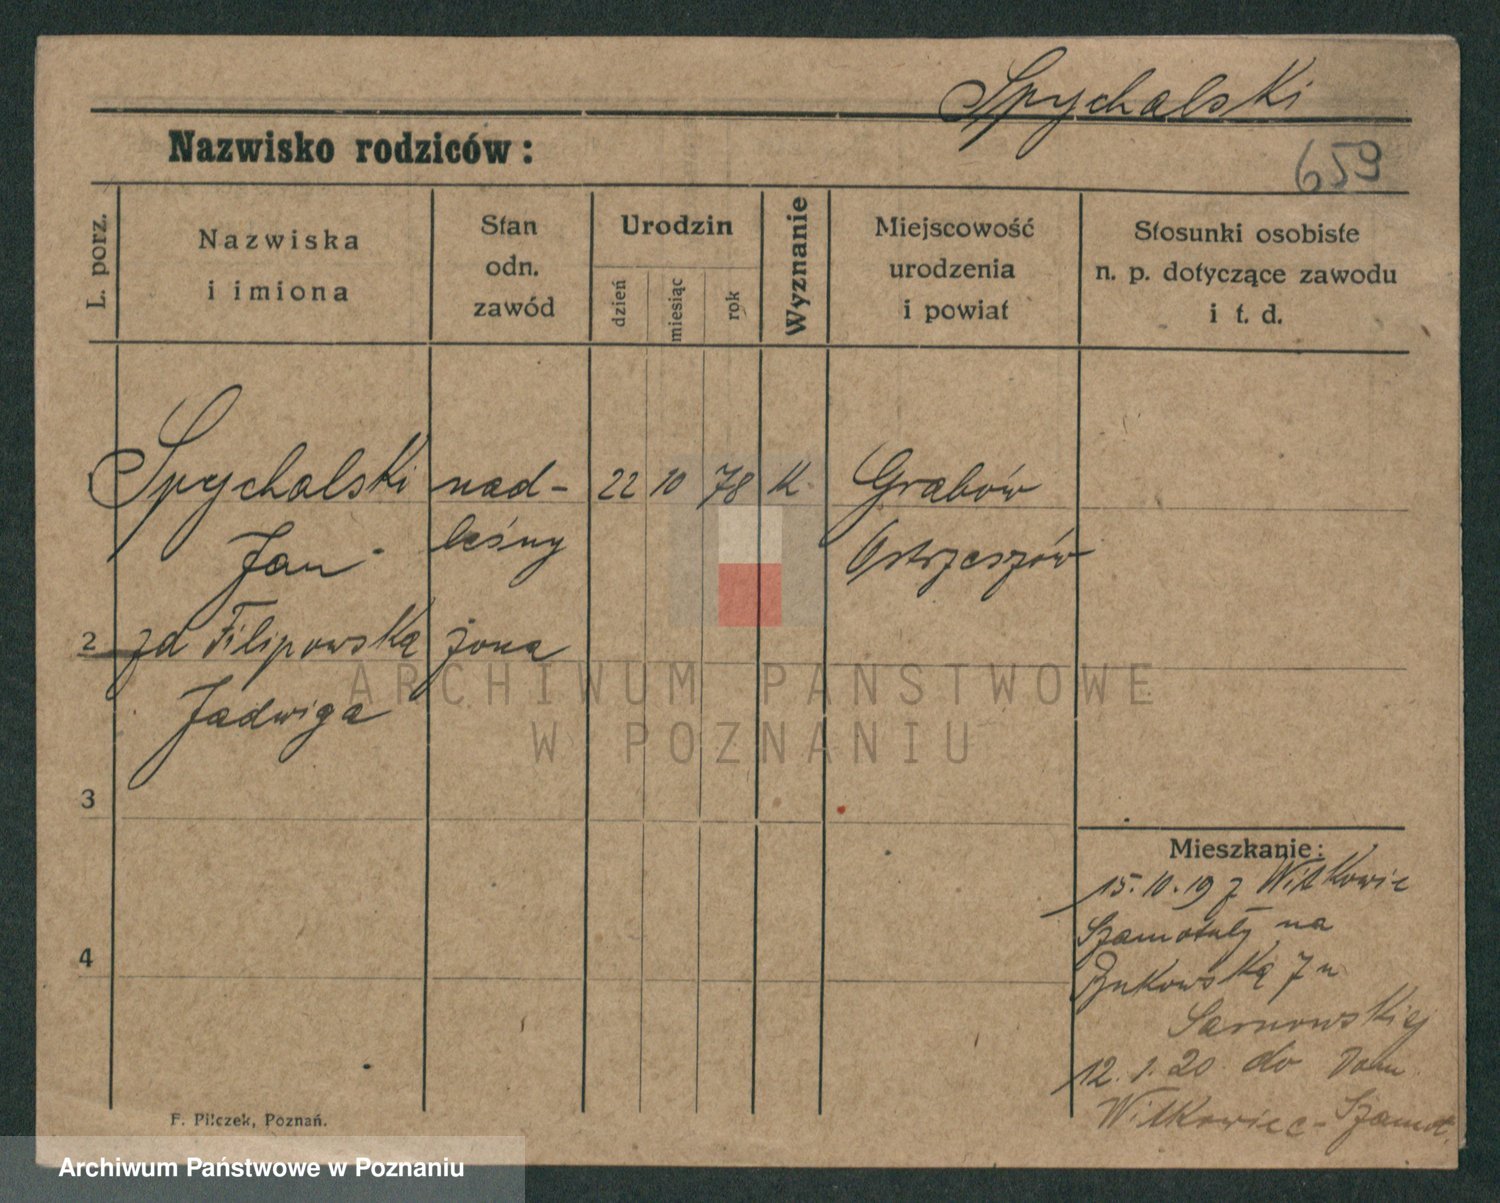 Spychalski
659
Nazwisko rodziców:
L. porz.
Nazwiska
i imiona
Stan
odn.
zawód
Urodzin
dzień
miesiąc
rok
Wyznanie
Miejscowość
urodzenia
i powiat
Stosunki osobiste
n. p. dotyczące zawodu
i t. d.
Spychalski nad- 22 10 78 k. Grabów
Jan leśny Ostrzeszów
2 zd Filipowska żona
Jadwiga
3
4
Mieszkanie:
15.10.19 z Witkowic
Szamotuły na
Bukowską 7 u
Sarnowskiej
12.1.20 do Dom
Witkowiec-Szamot.
F. Pilczek, Poznań.
ARCHIWUM PAŃSTWOWE
W POZNANIU
Archiwum Państwowe w Poznaniu